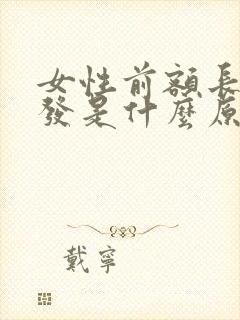 女性前額長
發是什麼原
戴寧